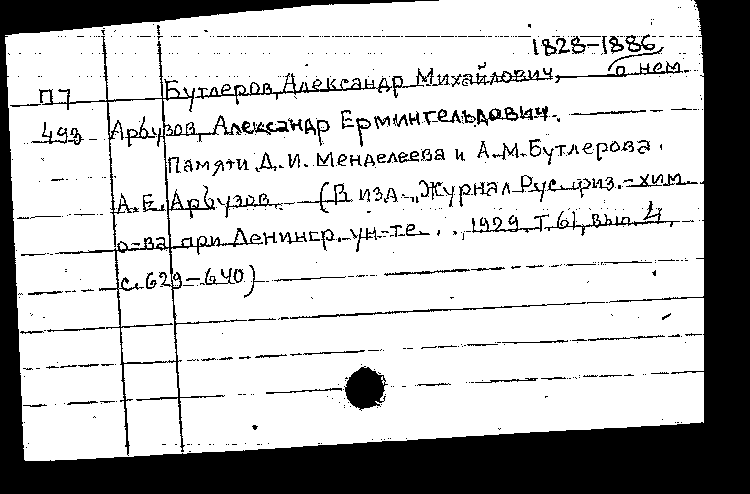 1828-1886
П7 Бутлеров, Александр Михайлович, о нем
493 Арбузов, Александр Ерминингельдович.
Памяти Д. И. Менделеева и А. М. Бутлерова.
А. Е. Арбузов. (В изд. „Журнал Рус. физ.-хим.
о-ва при Ленингр. ун-те..., 1929, Т. 61, вып. 4,
с. 629-640)